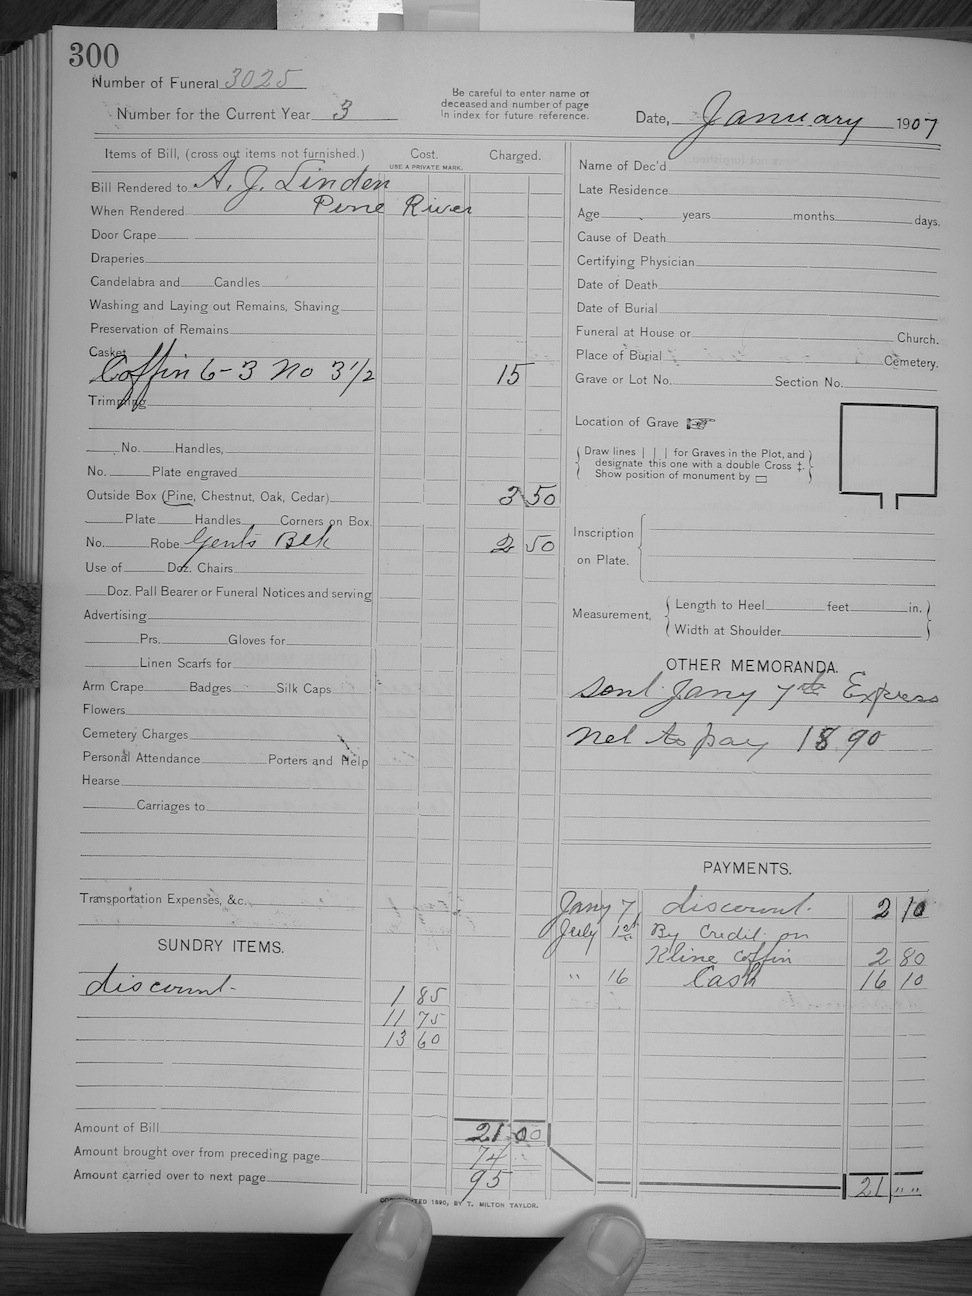 300
Number of Funeral 3025
Number for the Current Year 3
Be careful to enter name of
deceased and number of page
in index for future reference.
Date, January 1907
Items of Bill, (cross out items not furnished.) Cost. Charged.
USE A PRIVATE MARK.
Bill Rendered to A. J. Linden
When Rendered Pine River
Door Crape
Draperies
Candelabra and Candles
Washing and Laying out Remains, Shaving
Preservation of Remains
Casket
Coffin 6-3 No 3 1/2 15
Trimming
No. Handles,
No. Plate engraved
Outside Box (Pine, Chestnut, Oak, Cedar) 3 50
Plate Handles Corners on Box.
No. Robe Gents Blk 2 50
Use of Doz. Chairs
Doz. Pall Bearer or Funeral Notices and serving
Advertising
Prs. Gloves for
Linen Scarfs for
Arm Crape Badges Silk Caps
Flowers
Cemetery Charges
Personal Attendance Porters and Help
Hearse
Carriages to
Transportation Expenses, &c.
SUNDRY ITEMS.
discount 1 85
11 75
13 60
Amount of Bill 21 00
Amount brought over from preceding page 74
Amount carried over to next page 95
COPYRIGHTED 1890, BY T. MILTON TAYLOR.
Name of Dec'd
Late Residence
Age years months days.
Cause of Death
Certifying Physician
Date of Death
Date of Burial
Funeral at House or Church.
Place of Burial Cemetery.
Grave or Lot No. Section No.
Location of Grave
Draw lines | | | for Graves in the Plot, and
designate this one with a double Cross ‡.
Show position of monument by ▭
Inscription
on Plate.
Measurement,
Length to Heel feet in.
Width at Shoulder
OTHER MEMORANDA.
Sent Jany 7th Express
net to pay 18 90
PAYMENTS.
Jany 7 discount 2 10
July 1st By Credit on
Kline Coffin 2 80
" 16 Cash 16 10
21 " "